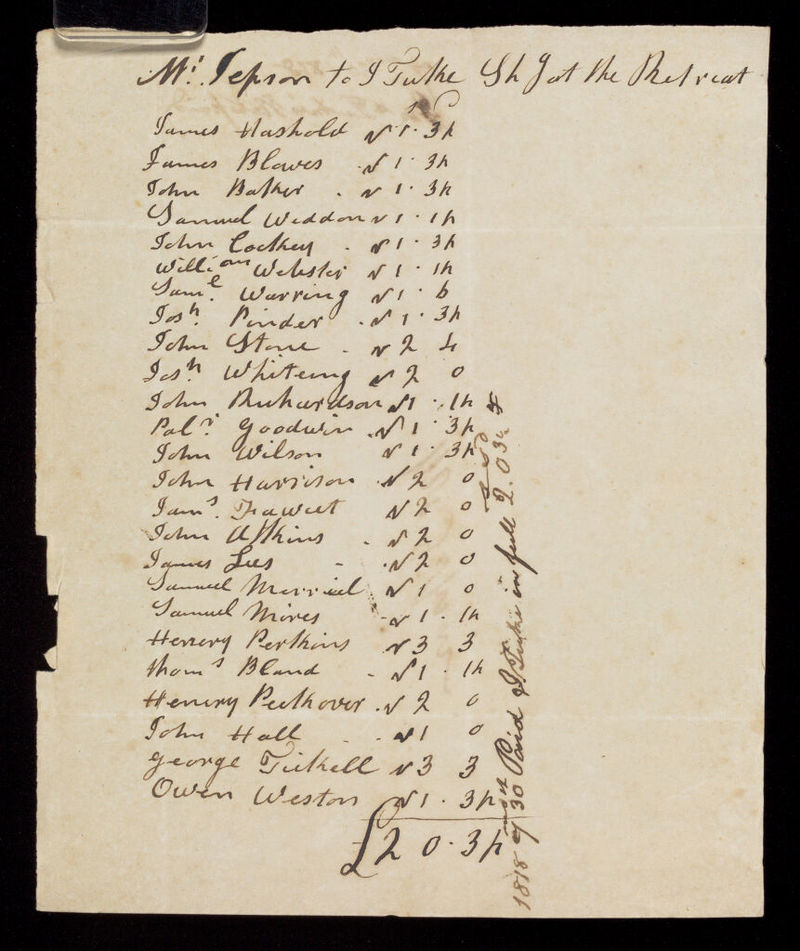 Mr. Jepson to J Tuke Sh g at the Retreat
s D
James Hashold √ 1 · 3h
James Blowes √ 1 · 3h
John Baker √ 1 · 3h
Samuel Weddon √ 1 · 1h
John Cockey √ 1 · 3h
William Webster √ 1 · 1h
Saml. Warring √ 1 · 6
Josh. Pinder √ 1 · 3h
John Stone √ 2 4
Josh. Whiteing √ 2 0
John Richardson √ 1 · 1h
Goodwin √ 1 · 3h
John Wilson √ 1 · 3h
John Harrison √ 2 0
Jams. Fawcet √ 2 0
John Atkins √ 2 0
James Lees √ 2 0
Samuel Merriel √ 1 0
Samuel Mires √ 1 · 1h
Henery Perkins √ 3 3
Thoms Bland √ 1 · 1h
Henery Peckover √ 2 0
John Hall √ 1 0
George Tickell √ 3 3
Owen Weston √ 1 · 3h
£2 0 · 3h
1818 9/mo 30 Paid J Tuke in full 2. 0 3½